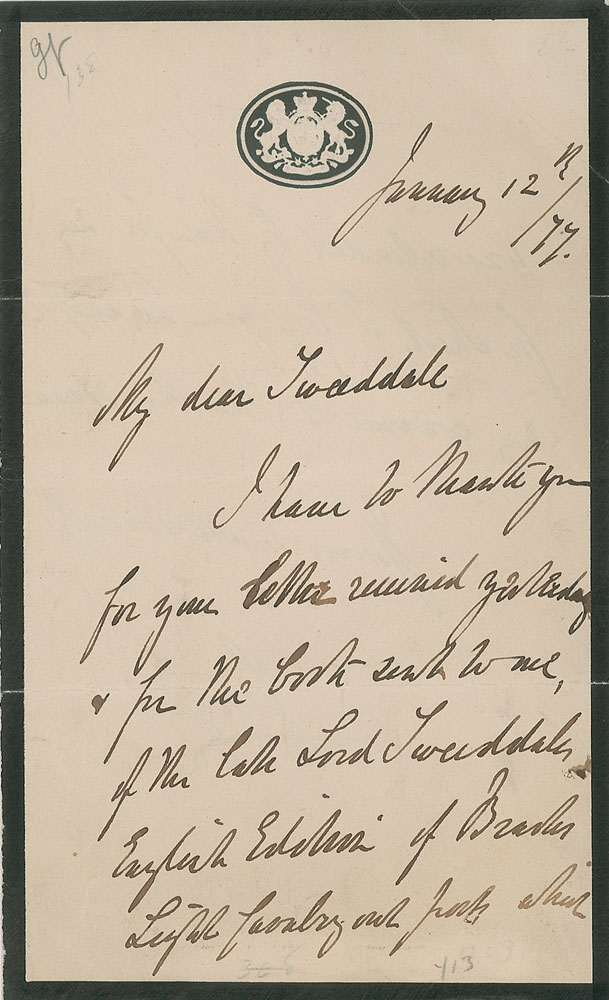 January 12th
/77.
My dear Tweeddale
I have to thank you
for your letter received yesterday
& for the book sent to me,
of the late Lord Tweeddales
English Edition of Bracks
Light Cavalry out posts which
413